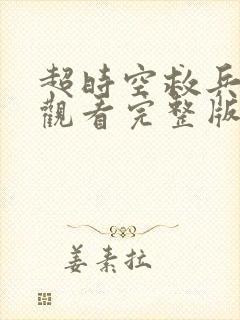 超時空救兵
觀看完整版
姜素拉